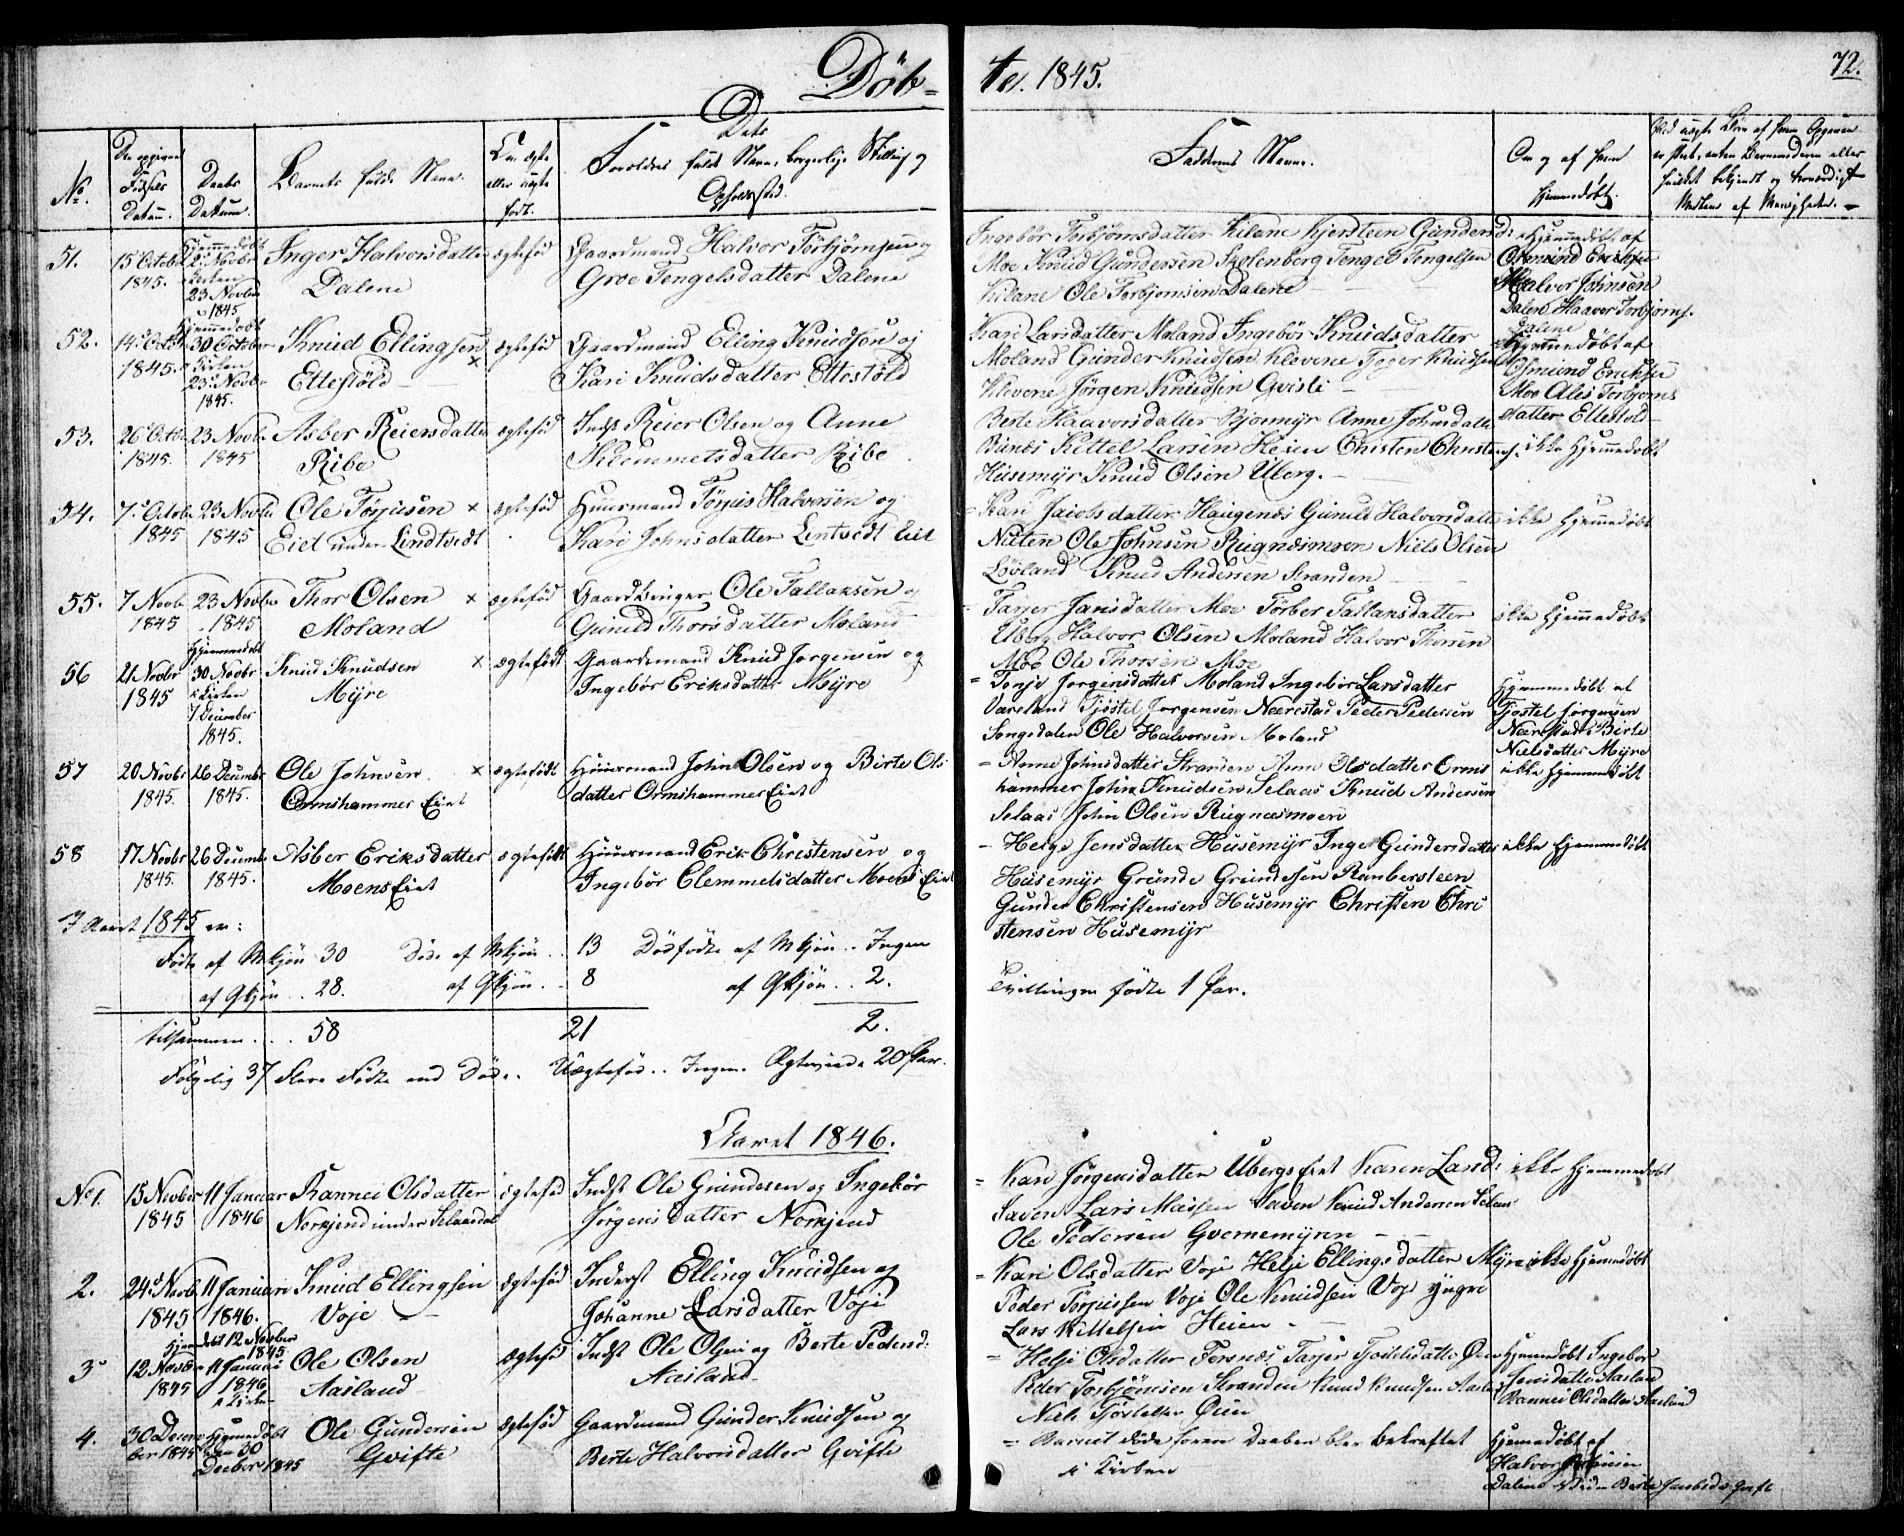 Døb-
te. 1845.
72.
No.
Den opgivne Fødsels Datum.
Daabs Datum.
Barnets fulde Navn.
Om ægte eller uægte født.
Forældres fulde Navn, borgerlige Stilling og Opholdssted.
Faddernes Navne.
Om og af hvem hjemmedøbt.
51.
15 Octobr 1845.
Hjemmedøbt 2 Novbr Kirken 23 Novbr 1845
Inger Halvorsdatter
Dalene
ægtefød
Gaardmand Halvor Torbjørnsen og
Groe Tengelsdatter Dalene
Ingebør Torbjørnsdatter Kilane Kjersteen Gundersd:
Moe Knud Gundersen Skolenberg Tengel Tengelsen
Kilane Ole Torbjornsen Dalene
Hjemmedøbt af
Osmund Eriksen
Halvor Johnsen
Dalene Haavor Torbjørns.
Dalene
52.
14 Octbr 1845.
Hjemmedøbt 30 October Kirken 23 Novbr 1845.
Knud Ellingsen ×
Ettestøld
ægtefød
Gaardmand Elling Knudsen og
Kari Knudsdatter Ettestøld
Kari Larsdatter Moland Ingebør Knudsdatter
Moland Gunder Knudsen Klevene Toger Knudsen
Klevene Jørgen Knudsen Gvisle
Hjemmedøbt af
Osmund Eriksen
Moe Ales Torbjørns
datter Ettestøld
53.
26 Octbr 1845.
23 Novbr 1845
Asber Reiersdatter
Ribe
ægtefød
Indst Reier Olsen og Anne
Klemmetsdatter Ribe
Berte Haavorsdatter Bjonmyr Anne Johnsdatt
Bånes Kittel Larsen Heien Christen Christens.
Husemyr Knud Olsen Uberg.
ikke Hjemmedøbt
54.
7 Octobr 1845
23 Novbr 1845
Ole Tørjusen ×
Eiet under Lindtvedt
ægtefød
Huusmand Tørjus Halvorsen og
Kari Johnsdatter Lentvedt Eiet
Kari Jacobsdatter Haugenes Gunild Halvorsdatte
Nuten Ole Johnsen Rugnæsmoen Niels Olsen
Løvland Knud Andersen Stranden
ikke Hjemmedøbt
55.
7 Novbr 1845
23 Novbr 1845
Thor Olsen ×
Moland
ægtefød
Gaardbruger Ole Tallaksen og
Gunild Thorsdatter Moland
Tarjer Jansdatter Moe Torber Tallaksdatter
Uberg Halvor Olsen Moland Halvor Thorsen
Moe Ole Thorsen Moe
ikke Hjemmedøbt
56
21 Novbr 1845
Hjemmedøbt 30 Novbr i Kirken 7 December 1845.
Knud Knudsen ×
Myre
ægtefødt
Gaardmand Knud Jorgensen og
Ingebør Eriksdatter Myre
Tonje Jorgensdatter Moland Ingebør Larsdatter
Vaaeland Tjøstel Jorgensen Næerestad Peder Pedersen
Songedalen Ole Halvorsen Moland
Hjemmedøbt af
Tjøstel Jorgensen
Nærestad Birte
Nielsdatter Myre
57
20 Novbr 1845.
26 Decembr 1845.
Ole Johnsen ×
Ormshammer Eiet
ægtefødt
Huusmand John Olsen og Birte Ols
datter Ormshammer Eiet
Anne Johnsdatter Stranden Anne Olsdatter Orms
hammer John Knudsen Selaas Knud Andersen
Selaas John Olsen Rugnæsmoen
ikke Hjemmedøbt
58
17 Novbr 1845.
26 Decembr 1845.
Asber Eriksdatter
Moens Eiet
ægtefødt
Huusmand Erik Christensen og
Ingebør Clemmetsdatter Moens Eiet
Helge Jensdatter Husemyr Inger Gundersdatter
Husemyr Grunde Grundesen Ranbersteen
Gunder Christensen Husemyr Christen Chri
stensen Husemyr
ikke Hjemmedøbt
I Aaret 1845 er:
Fødte af Mkjøn 30 Døde af Mkjøn .. 13 Dødfødte af Mkjøn .. Ingen
af Qkjøn .. 28. af Qkjøn .. 8 af Qkjøn .. 2.
Tvillinger fødte 1 Par.
tilsammen .... 58 21 2.
Følgelig 37 flere Fødte end Døde. Uægtefød .. Ingen. Ægteviede 20 Par.
Aaret 1846.
No 1.
15 Novbr 1845
11 Januar 1846
Rannei Olsdatter
Norkjend under Selaasdal
ægtefød
Indst Ole Gundersen og Ingebør
Jørgensdatter Norkjend
Kari Jørgensdatter Ubergs Eiet Karen Land:
Saven Lars Matsen Saven Knud Andersen Selaas
Ole Pedersen Gvernemyren
ikke Hjemmedøbt
2.
24 Novbr 1845
11 Januari 1846.
Knud Ellingsen
Voje
ægtefød
Inderst Elling Knudsen og
Johanne Larsdatter Voje
Kari Olsdatter Voje Helje Ellingsdatter Myre
Peder Tørjussen Voje Ole Knudsen Voje yngre
Lars Kittelsen Heien
ikke Hjemmedøbt
3
12 Novbr 1845
Hjemdøbt 12 Novber 1845 11 Januar 1846 i Kirken
Ole Olsen
Aasland
ægtefød
Indst Ole Olsen og Berte Pedersd:
Aasland
Helje Olsdatter Fersnæs Tarjer Tjostelsdatter Øen
Peder Torbjørnsen Stranden Knud Knudsen Aasland
Niels Tjøstelsen Øien
Hjemmedøbt Ingebor
Jensdatter Aasland
Rannei Olsdatter Aasland
4.
30 Decem ber 1845
Hjemmedøbt den 30 Decber 1845
Ole Gundersen
Gvifte
ægtefød
Gaardmand Gunder Knudsen og
Berte Halvorsdatter Gvifte
Barnet døde forend Daaben blev bekræftet
i Kirken
Hjemmedøbt af
Halvor Johnsen
Dalene